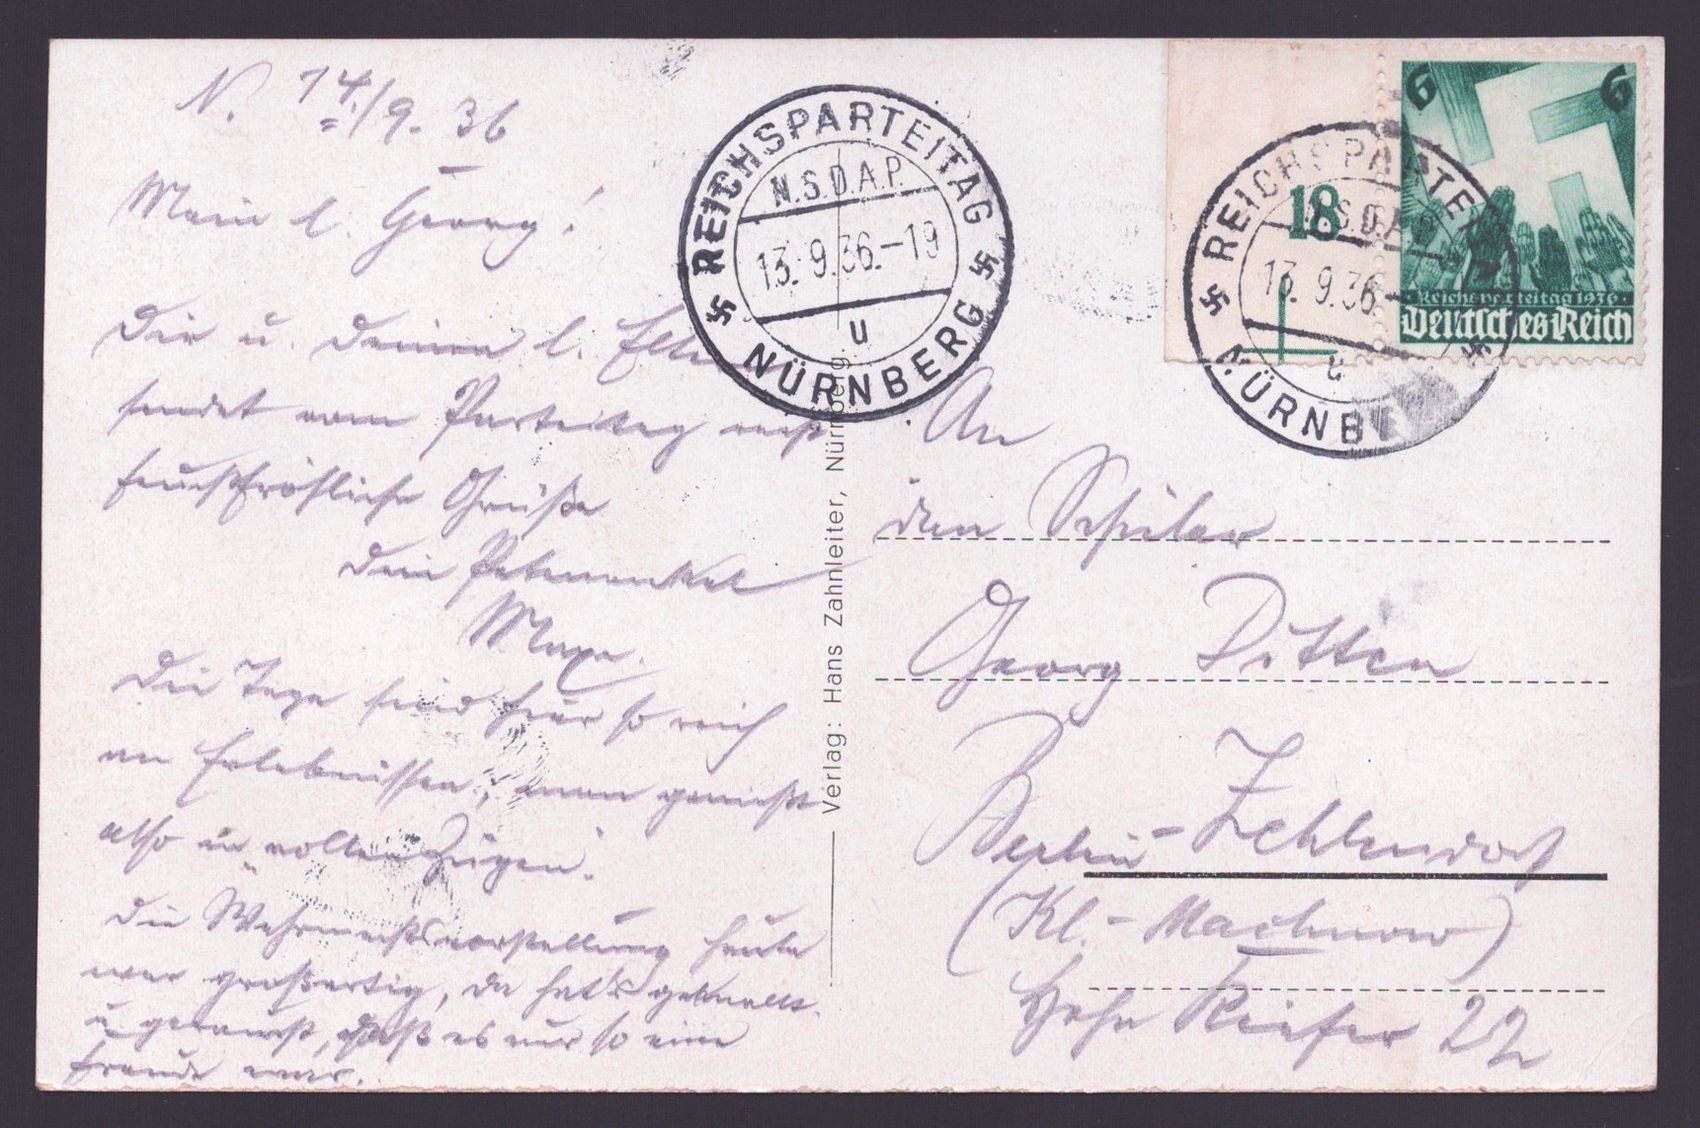 N. 14./9. 36
Mein l. Georg!
Dir u. Deinen l. Eltern
sendet vom Parteitag recht
feuchtfröhliche Grüße
Dein Patenonkel
Maxe.
Die Tage sind hier so reich
an Erlebnissen, man genießt
also in vollen Zügen.
Die Wehrmachtsvorstellung heute
war großartig, da hat's geknallt
u. geraucht, daß es nur so eine
Freude war.
REICHSPARTEITAG
N.S.D.A.P.
13.9.36.-19
u
NÜRNBERG
Verlag: Hans Zahnleiter, Nürnberg.
18
6 6
Reichsparteitag 1936
Deutsches Reich
REICHSPARTEI
N.S.D.A.P.
13.9.36-
u
NÜRNBE
An
den Schüler
Georg Ditten
Berlin-Zehlendorf
(Kl.-Machnow)
Hohe Kiefer 22